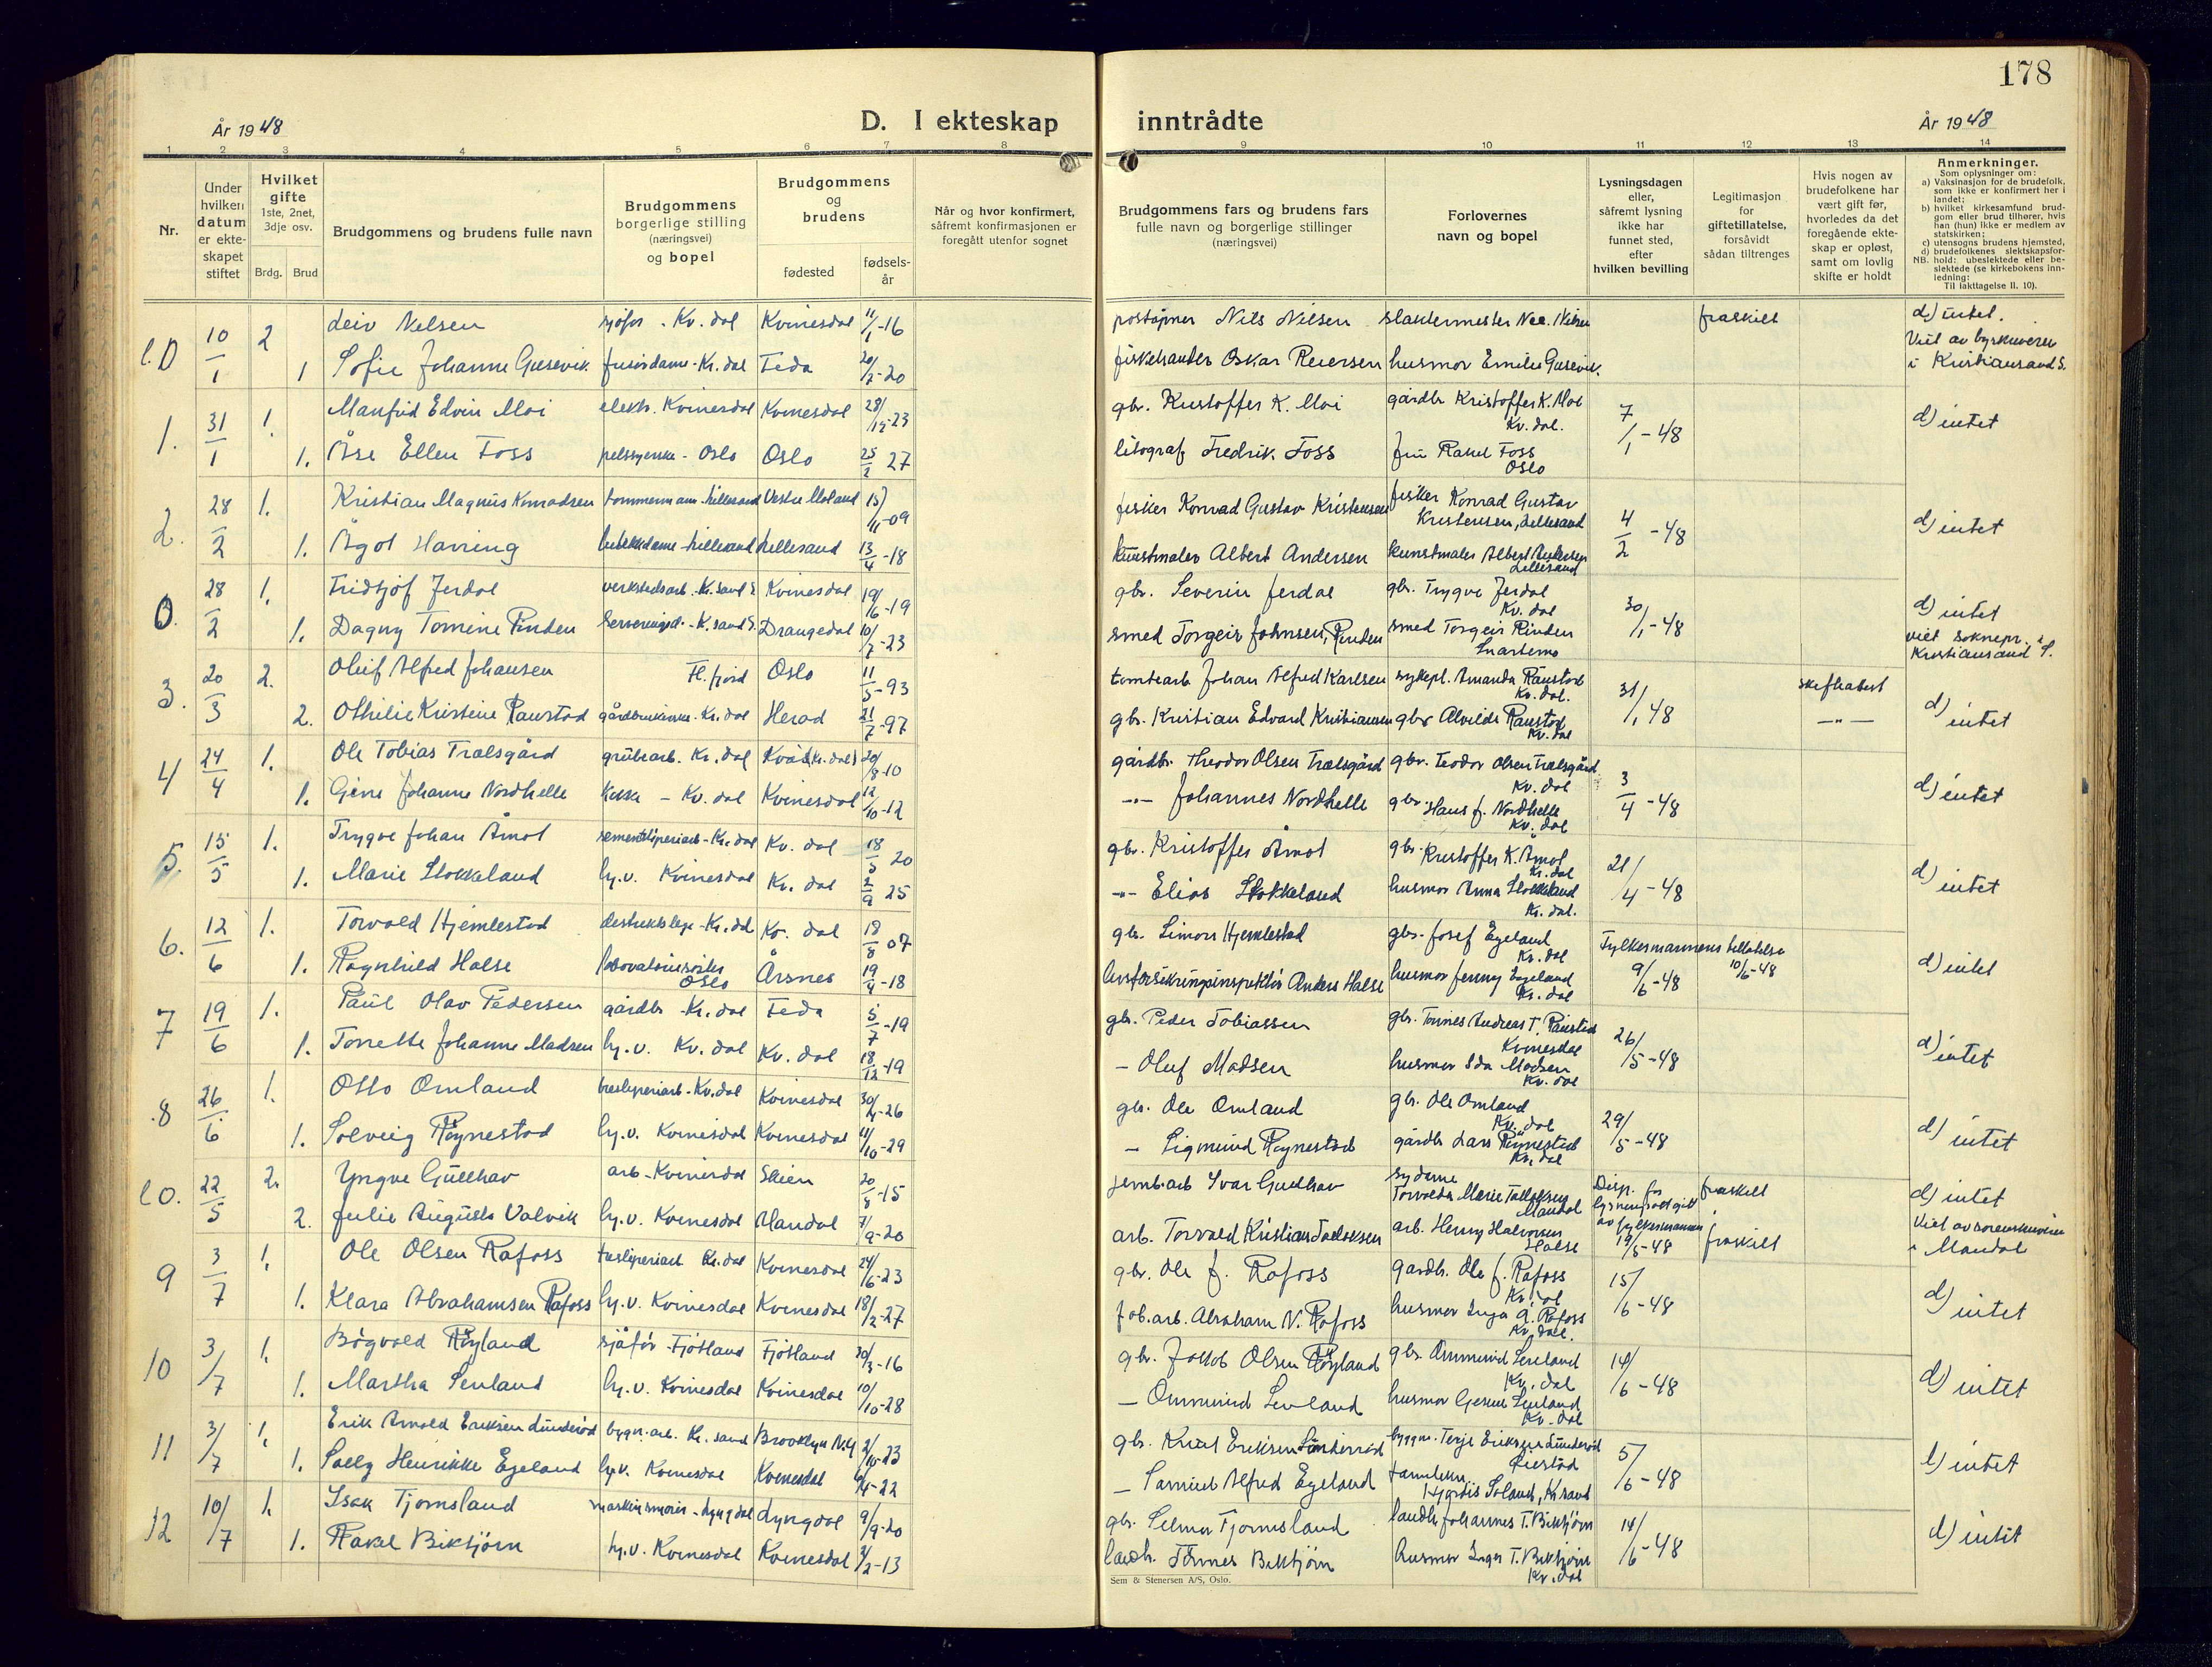 178
År 1948
D. I ekteskap inntrådte
År 1948
1 2 3 4 5 6 7 8 9 10 11 12 13 14
Nr.
Under hvilken datum er ekteskapet stiftet
Hvilket gifte 1ste, 2net, 3dje osv.
Brdg. Brud
Brudgommens og brudens fulle navn
Brudgommens borgerlige stilling (næringsvei) og bopel
Brudgommens og brudens
fødested
fødselsår
Når og hvor konfirmert, såfremt konfirmasjonen er foregått utenfor sognet
Brudgommens fars og brudens fars fulle navn og borgerlige stillinger (næringsvei)
Forlovernes navn og bopel
Lysningsdagen eller, såfremt lysning ikke har funnet sted, efter hvilken bevilling
Legitimasjon for giftetillatelse, forsåvidt sådan tiltrenges
Hvis nogen av brudefolkene har vært gift før, hvorledes da det foregående ekteskap er opløst, samt om lovlig skifte er holdt
Anmerkninger.
Som oplysninger om:
a) Vaksinasjon for de brudefolk, som ikke er konfirmert her i landet;
b) hvilket kirkesamfund brudgom eller brud tilhører, hvis han (hun) ikke er medlem av statskirken;
c) utensogns brudens hjemsted,
d) brudefolkenes slektskapsforhold: ubeslektede eller beslektede (se kirkebokens innledning:
NB.
Til iakttagelse II. 10).
10/1 2 Leiv Nelsen sjåfør - Kv. dal Kvinesdal 11/1-16 poståpner Nils Nilsen slaktermester fraskilt d) intet.
1 Sofie Johanne Gusevik frisørdame - Kv. dal Feda 20/7-20 fiskehandler Oskar Reiersen husmor Emilie Gusevik. Viet av byskriveren i Kristiansand S.
1. 31/1 1. Manfred Edvin Moi elektr. Kvinesdal Kvinesdal 28/12-23 gbr. Kristoffer K. Moi gårdbr Kristoffer K. Moi Kv. dal. 7/1-48 d) intet
1. Åse Ellen Foss pelssyerske - Oslo Oslo 25/2 27 litograf Fredrik Foss fru Rakel Foss Oslo
2. 28/2 1. Kristian Magnus Konradsen tømmermann - Lillesand Vestre Moland 15/11-09 fisker Konrad Gustav Kristensen fisker Konrad Gustav Kristensen, Lillesand 4/2-48 d) intet
1. Ågot Hæring butikkdame - Lillesand Lillesand 13/4-18 kunstmaler Albert Andersen kunstmaler Albert Andersen Lillesand
0. 28/2 1. Fridtjof Jerdal verkstedsarb. - Kr.sand S Kvinesdal 19/6-19 gbr. Severin Jerdal gbr. Trygve Jerdal Kv. dal 30/1-48 d) intet
1. Dagny Tomine Rinden K.sand S. Drangedal 10/7-23 smed Torgeir Johnsen, Rinden smed Torgeir Rinden Snartemo viet soknepr. i Kristiansand S.
3. 20/3 2. Oluf Alfred Johansen Fl. fjord Oslo 11/5-93 tomtearb Johan Alfred Karlsen sykepl. Amanda Raustad Kv. dal. 31/1 48 d) intet
2. Othilie Kristine Raustad gårdbrukerske - Kv. dal Herad 21/7-97 gbr. Kristian Edvard Kristiansen gbr Alvilde Raustad Kv. dal —"—
4 24/4 1. Ole Tobias Trælsgård grubearb. Kv. dal Kvås (Kv. dal) 20/8-10 gårdbr. Theodor Olsen Trælsgård gbr. Teodor Olsen Trælsgård Kv. dal 3/4-48 d) intet
1. Gine Johanne Nordhelle kokke - Kv. dal Kvinesdal 12/10-12 -"- Johannes Nordhelle gbr. Hans J. Nordhelle Kv. dal
5. 15/5 1. Trygve Johan Åmot sementstøperiarb - Kv. dal Kv. dal 18/5 20 gbr. Kristoffer Åmot gbr. Kristoffer K. Åmot Kv. dal 21/4-48 d) intet
1. Marie Stokkeland hj.v. Kvinesdal Kv. dal 2/9 25 -"- Elias Stokkeland husmor Anna Stokkeland Kv. dal.
6. 12/6 1. Torvald Hjemlestad distriktslege - Kv. dal Kv. dal 18/8 07 gbr. Simon Hjemlestad gbr. Josef Egeland Kv. dal Fylkesmannens tillatelse 9/6-48 10/6-48 d) intet
1. Ragnhild Halse Oslo Årsnes 19/4-18 livsforsikringsinspektør Anders Halse husmor Jenny Egeland Kv. dal
7 19/6 1. Paul Olav Pedersen gårdbr - Kv. dal Feda 5/7-19 gbr. Peder Tobiassen gbr. Tønnes Andreas T. Raustad Kvinesdal 26/5-48 d) intet
1. Tonette Johanne Madsen hj.v. Kv. dal Kv. dal 18/12-19 — Oluf Madsen husmor Ida Madsen Kv. dal
8 26/6 1. Otto Omland tresliperiarb - Kv. dal Kvinesdal 30/4-26 gbr. Ole Omland gbr. Ole Omland Kv. dal 29/5-48 d) intet
1. Solveig Røynestad hj.v. Kvinesdal Kvinesdal 11/10-29 — Sigmund Røynestad gårdbr Lars Røynestad Kv. dal
22/5 2. Yngve Gullhav arb - Kvinesdal Skien 20/8-15 jernb.arb Ivar Gullhav sydame Torvalda Marie Tallaksen Mandal Disp. for lysning gitt av fylkesmannen 19/5-48 fraskilt d) intet
2. Julie Augusta Valvik hj.v. Kvinesdal Mandal 7/9-20 arb. Torvald Kristian Tallaksen arb. Henry Halvorsen Halse fraskilt viet av sorenskriveren i Mandal
9 3/7 1. Ole Olsen Rafoss tresliperiarb Kv. dal Kvinesdal 24/6-23 gbr. Ole J. Rafoss gardbr. Ole J. Rafoss Kv. dal 15/6-48 d) intet
1. Klara Abrahamsen Rafoss hj.v. Kvinesdal Kvinesdal 18/2-27 fab.arb. Abraham N. Rafoss husmor Inga A. Rafoss Kv. dal.
10 3/7 1. Bogvald Røyland sjåfør - Fjotland Fjotland 30/3-16 gbr. Jakob Olsen Røyland gbr. Ommund Seuland Kv. dal 14/6-48 d) intet
1. Martha Seuland hj.v. Kvinesdal Kvinesdal 10/10-28 — Ommund Seuland husmor Gesine Seuland Kv. dal
11 3/7 1. Erik Arnold Eriksen Lunderød bygn.arb. Kr. sand Brooklyn N.Y 23 gbr. Knut Eriksen Lunderød byggm. Terje Eriksen Lunderød Øiestad 5/6-48 d) intet
1. Solly Henrikke Egeland hj.v. Kvinesdal Kvinesdal 22 — Samuel Alfred Egeland Hjørdis Soland, Kr.sand
12 10/7 1. Isak Tjomsland maskinsmører - Lyngdal Lyngdal 9/9-20 gbr. Selmer Tjomsland landh. Johannes T. Birktjørn 14/6-48 d) intet
1. Rakel Birktjørn hj.v. Kvinesdal Kvinesdal 2/2-13 landh. Tønnes Birktjørn husmor Inger T. Birktjørn Kv. dal
Sem & Stenersen A/S, Oslo.